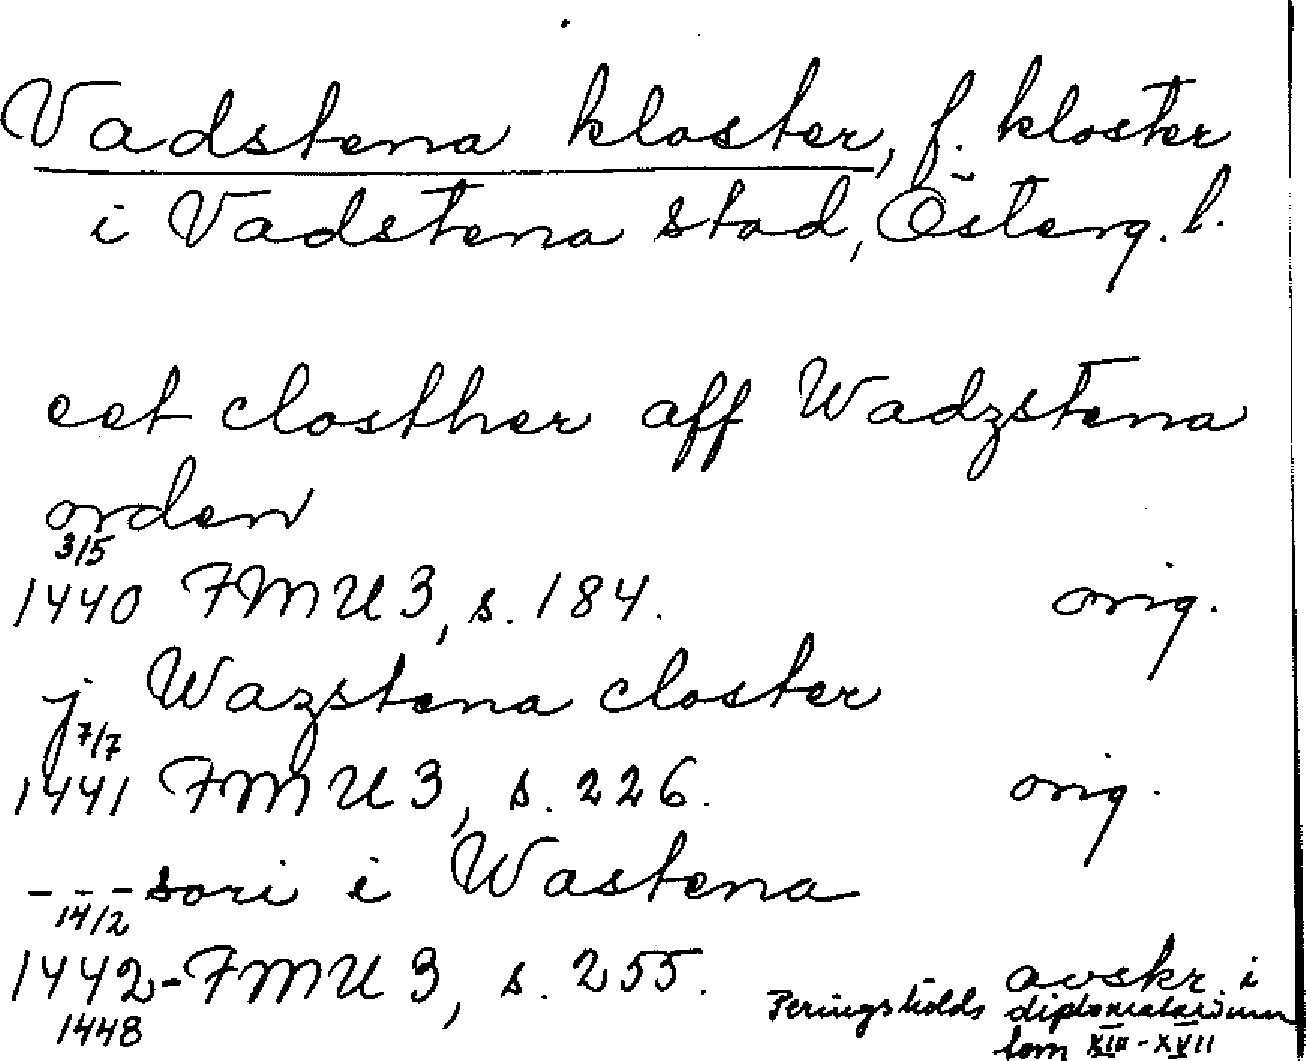 Vadstena kloster, f. kloster
i Vadstena stad, Österg. l.
eet closther aff Wadzstena
orden
3/5
1440 FMU 3, s. 184. orig.
j Wazstena closter
7/7
1441 FMU 3, s. 226. orig.
---sori i Wastena
14/2
1442-FMU 3, s. 255. avskr. i
1448 Peringskölds diplomatarium
tom XIII-XVII